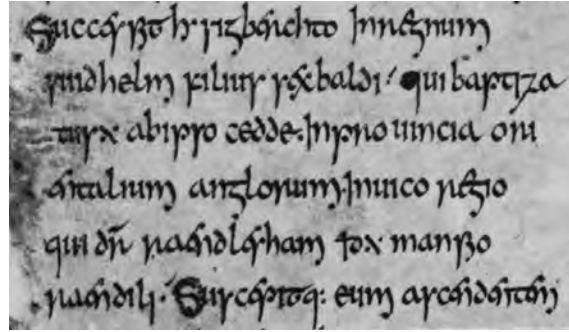 Successit h sigberchto Inregnum
suidhelm filius sexbaldi; qui baptiza
tus÷ abipso cedde. Inprouincia ori
entalium anglorum. Inuico regio
qui dr̄ raendlesham mansio
raendili. Suscepitq: eum ascendentem